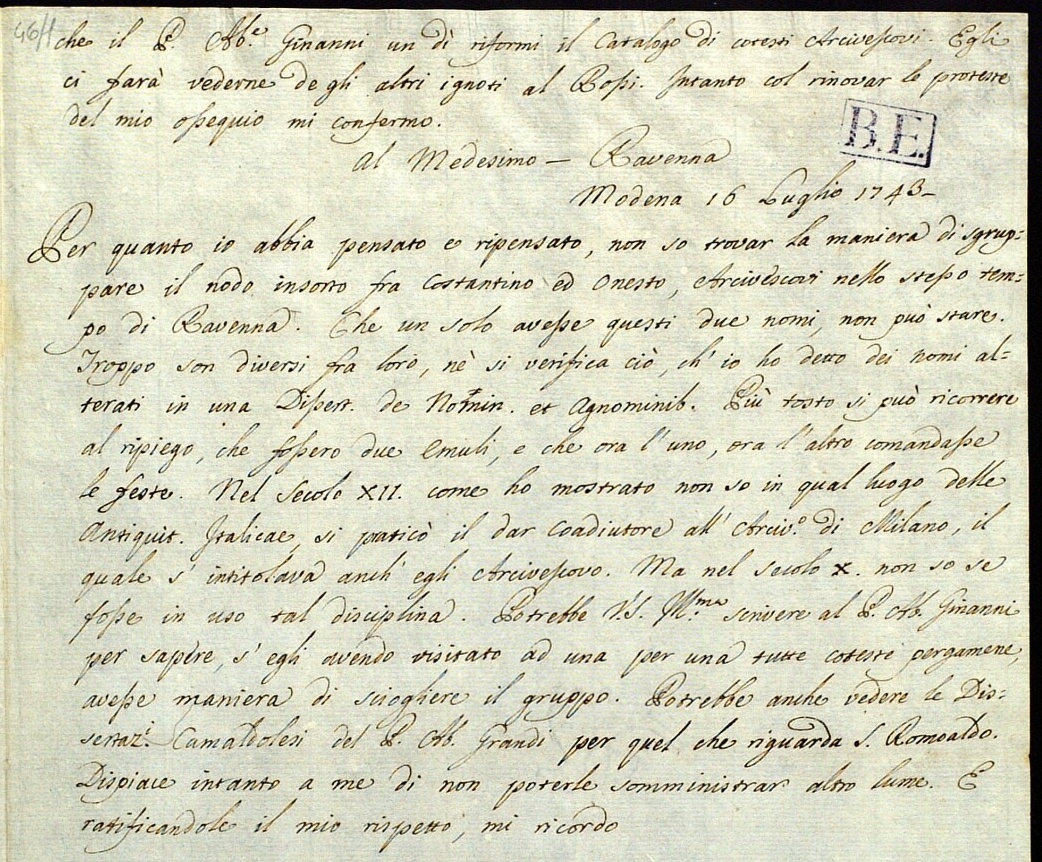 46/1
che il P. Ab.e Ginanni un dì riformi il Catalogo di cotesti Arcivescovi. Egli
ci farà vederne de gli altri ignoti al Rossi. Intanto col rinovar le proteste
del mio ossequio mi confermo.
B.E.
Al Medesimo — Ravenna
Modena 16 Luglio 1743 –
Per quanto io abbia pensato e ripensato, non so trovar la maniera di sgrup=
pare il nodo insorto fra Costantino ed Onesto, Arcivescovi nello stesso tem=
po di Ravenna. Che un solo avesse questi due nomi, non può stare.
Troppo son diversi fra loro, nè si verifica ciò, ch' io ho detto dei nomi al=
terati in una Dissert. de Nomin. et Agnominib. Più tosto si può ricorrere
al ripiego, che fossero due emuli, e che ora l'uno, ora l'altro comandasse
le feste. Nel Secolo XII. come ho mostrato non so in qual luogo delle
Antiquit. Italicae, si praticò il dar Coadiutore all' Arciv.o di Milano, il
quale s' intitolava anch' egli Arcivescovo. Ma nel secolo X. non so se
fosse in uso tal disciplina. Potrebbe V.S. Ill.ma scrivere al P. Ab. Ginanni
per sapere, s' egli avendo visitato ad una per una tutte coteste pergamene,
avesse maniera di sciogliere il gruppo. Potrebbe anche vedere le Dis=
sertaz.i Camaldolesi del P. Ab. Grandi per quel che riguarda S. Romoaldo.
Dispiace intanto a me di non poterle somministrar altro lume. E
ratificandole il mio rispetto, mi ricordo